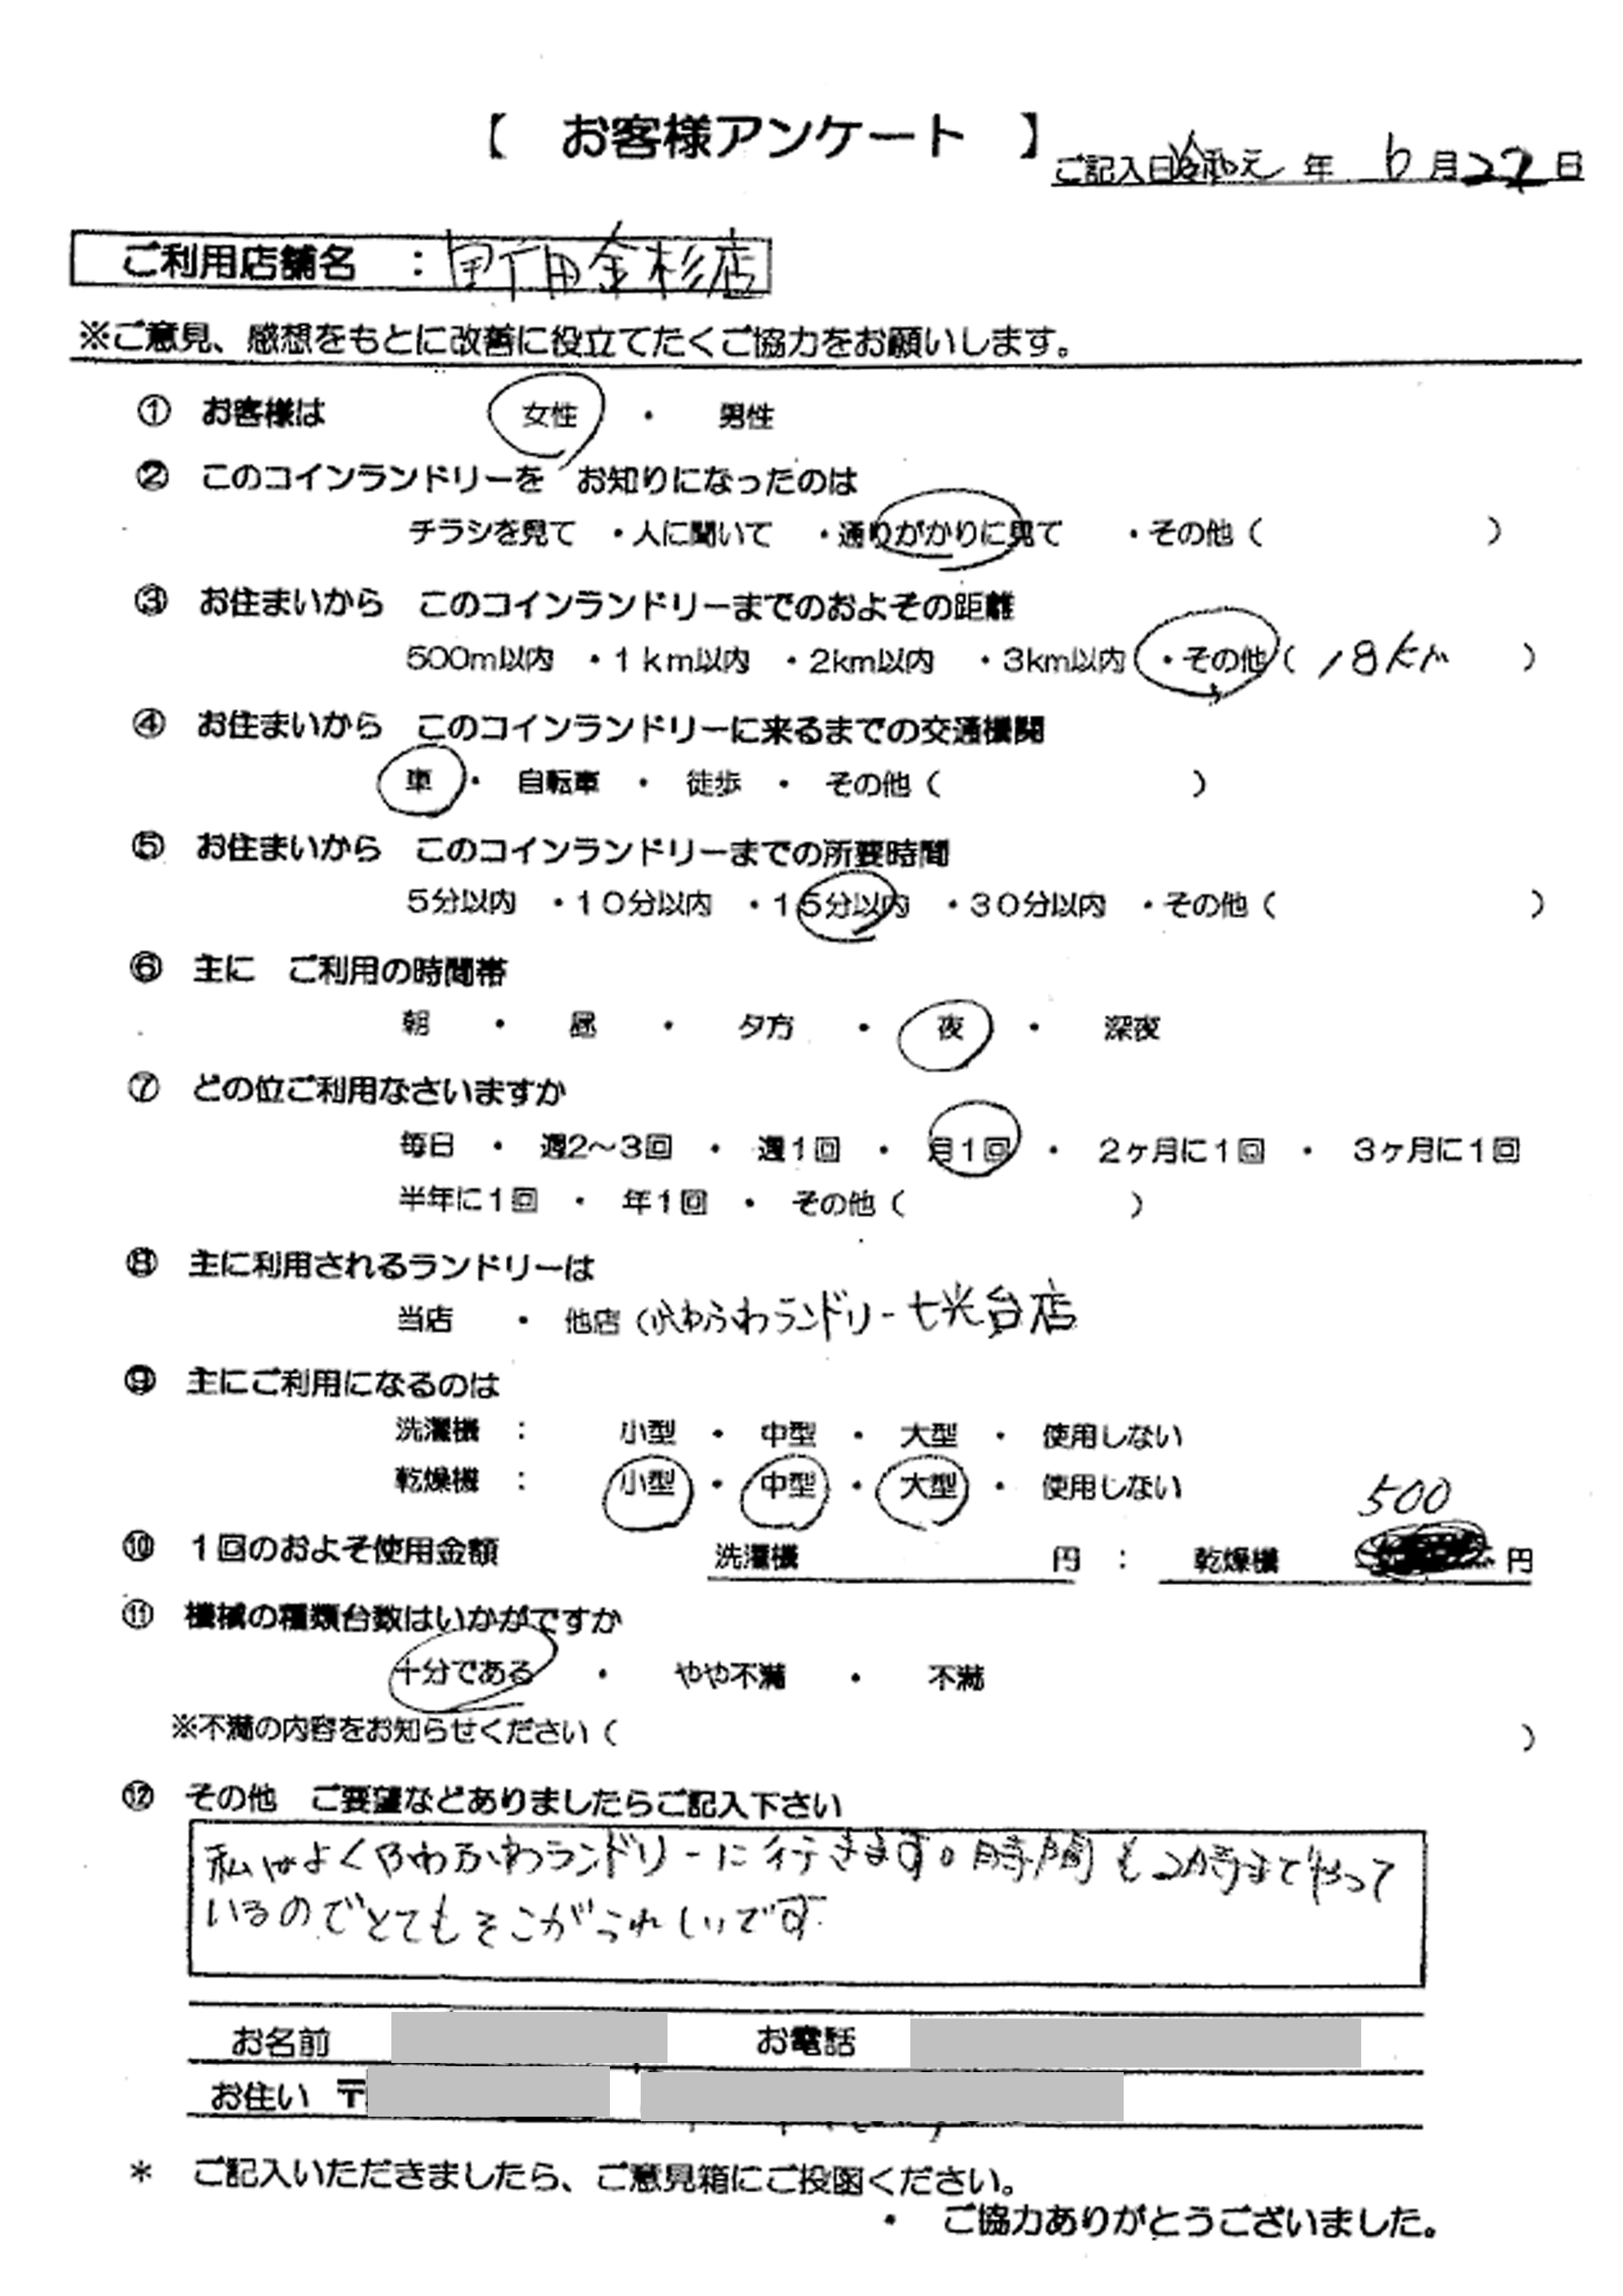 【 お客様アンケート 】
ご記入日 令和元 年 6 月 27 日
ご利用店舗名 : 野田金杉店
※ご意見、感想をもとに改善に役立てたくご協力をお願いします。
① お客様は 女性 ・ 男性
② このコインランドリーを お知りになったのは
チラシを見て ・人に聞いて ・通りがかりに見て ・その他（ ）
③ お住まいから このコインランドリーまでのおよその距離
500m以内 ・1km以内 ・2km以内 ・3km以内 ・その他（ 18km ）
④ お住まいから このコインランドリーに来るまでの交通機関
車 ・ 自転車 ・ 徒歩 ・ その他（ ）
⑤ お住まいから このコインランドリーまでの所要時間
5分以内 ・10分以内 ・15分以内 ・30分以内 ・その他（ ）
⑥ 主に ご利用の時間帯
朝 ・ 昼 ・ 夕方 ・ 夜 ・ 深夜
⑦ どの位ご利用なさいますか
毎日 ・ 週2～3回 ・ 週1回 ・ 月1回 ・ 2ヶ月に1回 ・ 3ヶ月に1回
半年に1回 ・ 年1回 ・ その他（ ）
⑧ 主に利用されるランドリーは
当店 ・ 他店（ふわふわランドリー七光台店
⑨ 主にご利用になるのは
洗濯機 : 小型 ・ 中型 ・ 大型 ・ 使用しない
乾燥機 : 小型 ・ 中型 ・ 大型 ・ 使用しない
⑩ 1回のおよそ使用金額 洗濯機 円 : 乾燥機 500 円
⑪ 機械の種類台数はいかがですか
十分である ・ やや不満 ・ 不満
※不満の内容をお知らせください（ ）
⑫ その他 ご要望などありましたらご記入下さい
私はよくふわふわランドリーに行きます。時間も2時までやって
いるのでとてもそこがうれしいです
お名前 お電話
お住い 〒
* ご記入いただきましたら、ご意見箱にご投函ください。
・ ご協力ありがとうございました。